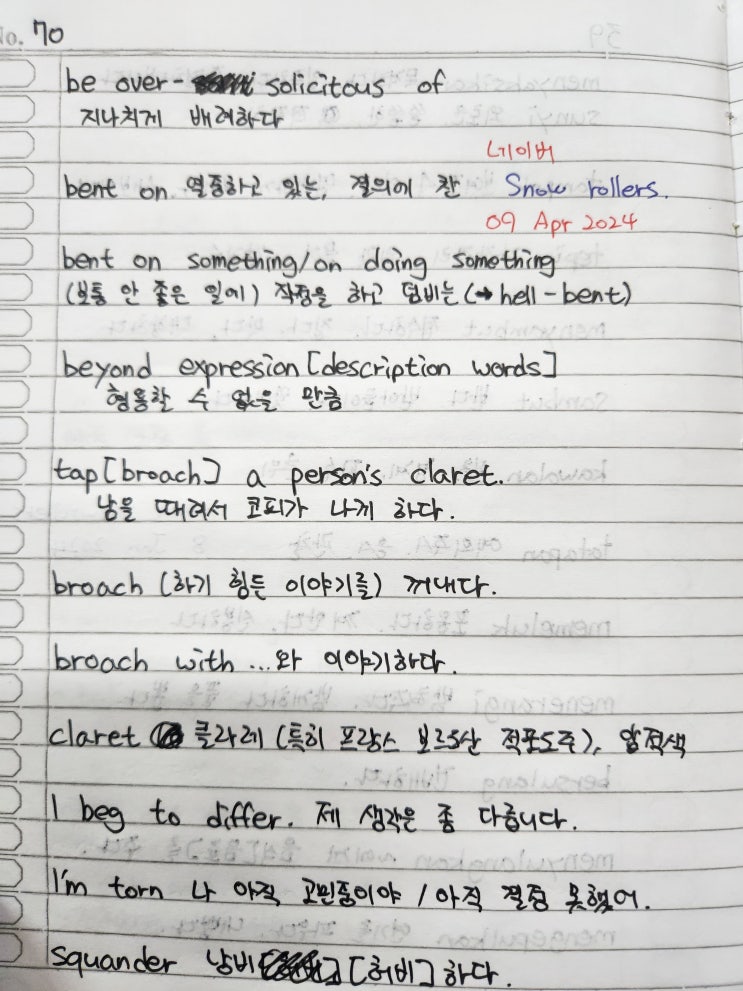 No. 70
be over-solicitous of
지나치게 배려하다
네이버
bent on 열중하고 있는, 결의에 찬 Snow rollers.
09 Apr 2024
bent on something/on doing something
(보통 안 좋은 일에) 작정을 하고 덤비는 (→ hell-bent)
beyond expression [description words]
형용할 수 없을 만큼
tap [broach] a person's claret.
남을 때려서 코피가 나게 하다.
broach (하기 힘든 이야기를) 꺼내다.
broach with ...와 이야기하다.
claret 클라레 (특히 프랑스 보르산 적포도주), 암적색
I beg to differ. 제 생각은 좀 다릅니다.
I'm torn 나 아직 고민중이야 / 아직 결정 못했어.
squander 낭비[허비]하다.